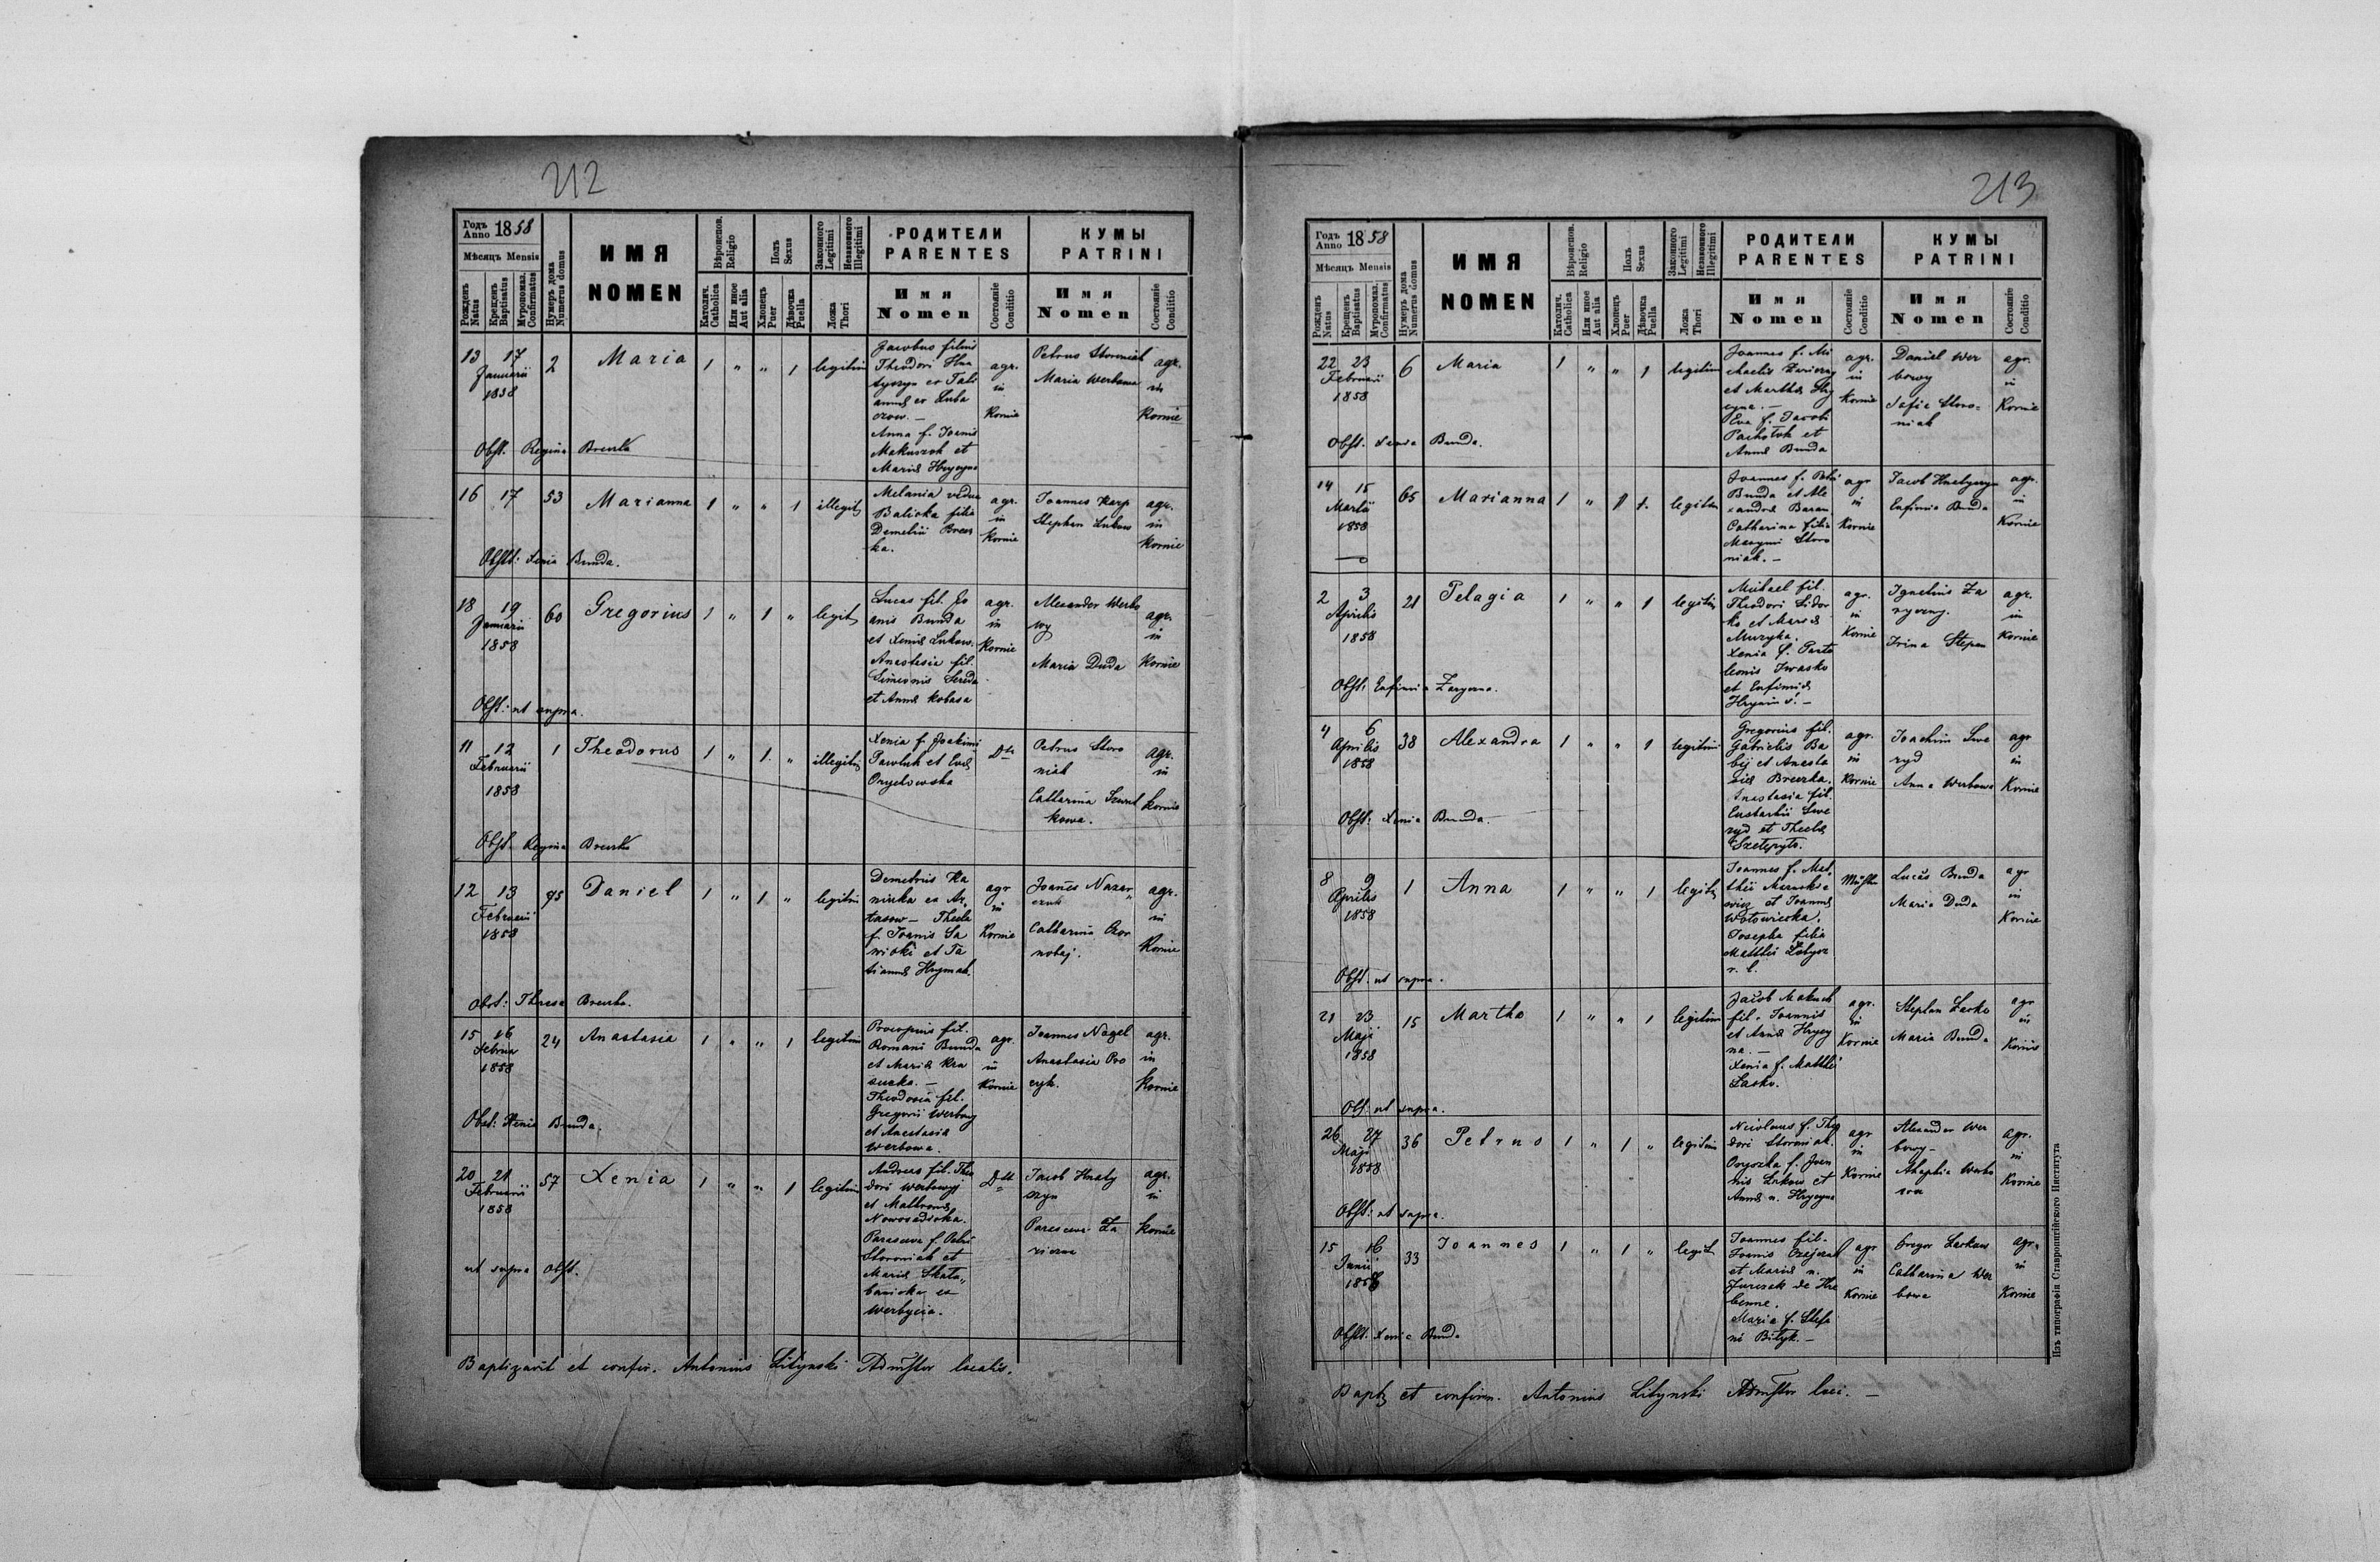 212
Годъ Anno 1858
Мѣсяцъ Mensis
Рожденъ Natus
Крещенъ Baptisatus
Мѵропомаз. Confirmatus
Нумеръ дома Numerus domus
ИМЯ
NOMEN
Вѣроиспов. Religio
Католич. Catholica
Или иное Aut alia
Полъ Sexus
Хлопецъ Puer
Дѣвочка Puella
Законного Legitimi
Незаконного Illegitimi
Ложа Thori
РОДИТЕЛИ
PARENTES
Имя
Nomen
Состояніе Conditio
КУМЫ
PATRINI
Имя
Nomen
Состояніе Conditio
13 17 2 Maria 1 " " 1 legitim
Januarii
1858
Jacobus filius
Theodori Hna
tyszyn
Anna f. Joannis
Makuszok et
Maria Hrycyna
agr.
in
Kornie
Petrus Storoniak
Maria Werbowa
agr.
in
Kornie
Obst. Regina Brenka
16 17 53 Marianna 1 " " 1 illegit
Melania vidua
Balicka filia
Demetrii
agr.
in
Kornie
Joannes Karp
Stephan Lukow
agr.
in
Kornie
Obst: Xenia Bunda.
18 19 60 Gregorius 1 " 1 " legit
Januarii
1858
Lucas fil. Jo
anis Bunda
et Xenia Lukow.
Anastasia fil.
Simeonis Sereda
et Anna Kobasa
agr.
in
Kornie
Alexander Werbo
wy
Maria Duda
agr.
in
Kornie
Obst: ut supra.
11 12 1 Theodorus 1 " 1 " illegit
Februarii
1858
Xenia f. Joakimi
Pawluk et Eva
Petrus Storo
niak
Catharina
kowa.
agr.
in
Kornie
Obst. Regina
12 13 95 Daniel 1 " 1 " legitim
Februarii
1858
Demetrius Ka
f. Joannis Sa
wicki et Ta
tianna
agr
in
Kornie
Joannes Nazar
czuk
Catharina Czor
nobaj.
agr.
in
Kornie
Obst: Theresa
15 16 24 Anastasia 1 " " 1 legitim
Februar
1858
Procopius fil.
Romani Bunda
et Maria Kra
Theodosia fil.
Gregorii Werbowy
et Anastasia
Werbowa.
agr.
in
Kornie
Joannes Nagel
Anastasia Pro
cyk.
agr.
in
Kornie
Obst: Xenia Bunda.
20 21 57 Xenia 1 " " 1 legitim
Februarii
1858
Andreas fil. Theo
dori Werbowyj
et Mathrona
Nowosadska.
Parasceva f. Petri
Storoniak et
Maria
ex
Werbycia.
Dtt
Jacob Hnaty
szyn
Parasceva Za
riczna
agr.
in
Kornie
ut supra obst.
Baptizavit et confir. Antonius Litynski Admstor localis.
213
Годъ Anno 1858
Мѣсяцъ Mensis
Рожденъ Natus
Крещенъ Baptisatus
Мѵропомаз. Confirmatus
Нумеръ дома Numerus domus
ИМЯ
NOMEN
Вѣроиспов. Religio
Католич. Catholica
Или иное Aut alia
Полъ Sexus
Хлопецъ Puer
Дѣвочка Puella
Законного Legitimi
Незаконного Illegitimi
Ложа Thori
РОДИТЕЛИ
PARENTES
Имя
Nomen
Состояніе Conditio
КУМЫ
PATRINI
Имя
Nomen
Состояніе Conditio
22 23 6 Maria 1 " " 1 legitim
Februarii
1858
Joannes f. Mi
chaelis Zariczny
et Martha Hry
cyna. —
Eva f. Jacobi
Pacholuk et
Anna Bunda
agr.
in
Kornie
Daniel Wer
bowy
Sofia Storo=
niak
agr.
in
Kornie
Obst. Xenia Bunda.
14 15 65 Marianna 1 " 1 1. legitim
Martii
1858
Joannes f. Petri
Bunda et Ale
xandra Baran.
Catharina filia
Maxymi Storo
niak. —
agr
in
Kornie
Jacob Hnatyszyn
Eufimia Bunda
agr.
in
Kornie
2 3 21 Pelagia 1 " " 1 legitim
Aprilis
1858
Michael fil.
Theodori Sidor
ko et Maria
Muzyka.
Xenia f. Panta
leonis Iwasko
et Eufimia
agr.
in
Kornie
Ignatius Za
ryczny.
Irina Stepan
agr.
in
Kornie
Obst: Eufimia Zaryczna.
4 6 38 Alexandra 1 " " 1 legitim
Aprilis
1858
Gregorius fil.
Gabrielis Ba
bij et Anasta
sia
Anastasia fil.
Eustachii Swe
ryd et Thecla
agr.
in
Kornie
Joachim Swe
ryd
Anna Werbowa
agr
in
Kornie
Obst: Xenia Bunda.
8 9 1 Anna 1 " " 1 legit
Aprilis
1858
Joannes f. Mat
thii
wicz et Joanna
Josepha filia
Matthii
r. l.
Lucas Bunda
Maria Duda
agr
in
Kornie
Obst. ut supra.
21 23 15 Martha 1 " " 1 legitim
Maji
1858
Jacob Makuch
fil. Joannis
et Anna Hrycy
na. —
Xenia f. Matthii
Lasko.
agr.
in
Kornie
Stephan Lasko
Maria Bunda
agr
in
Kornie
Obs: ut supra.
26 27 36 Petrus 1 " 1 " legitim
Maji
1858
Nicolaus f. Theo
dori Storoniak.
Oryszka f. Joan
nis Lukow et
Anna n. Hrycyna
agr
in
Kornie
Alexander Wer
bowy —
Ahaphia Werbo
wa
agr.
in
Kornie
Obst: ut supra.
15 16 33 Joannes 1 " 1 " legit
Junii
1858
Joannes fil.
Joannis
et Maria n.
Jurczak de Hre
benne.
Maria f. Stefa
ni Bityk. —
agr
in
Kornie
Gregor Laskow
Catharina Wer
bowa
agr.
in
Kornie
Obst. Xenia Bunda
Bapt et confirm. Antonius Litynski Admstor loci. —
Изъ типографіи Ставропигійского Института